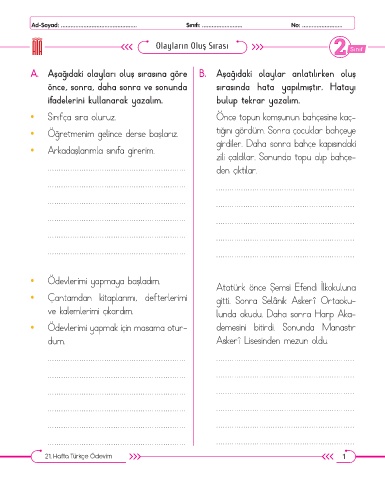 Ad-Soyad: ................................................ Sınıfı: ......................... No: .........................
Olayların Oluş Sırası
2. Sınıf
A. Aşağıdaki olayları oluş sırasına göre
önce, sonra, daha sonra ve sonunda
ifadelerini kullanarak yazalım.
• Sınıfça sıra oluruz.
• Öğretmenim gelince derse başlarız.
• Arkadaşlarımla sınıfa girerim.
• Ödevlerimi yapmaya başladım.
• Çantamdan kitaplarımı, defterlerimi
ve kalemlerimi çıkardım.
• Ödevlerimi yapmak için masama otur-
dum.
B. Aşağıdaki olaylar anlatılırken oluş
sırasında hata yapılmıştır. Hatayı
bulup tekrar yazalım.
Önce topun komşunun bahçesine kaç-
tığını gördüm. Sonra çocuklar bahçeye
girdiler. Daha sonra bahçe kapısındaki
zili çaldılar. Sonunda topu alıp bahçe-
den çıktılar.
Atatürk önce Şemsi Efendi İlkokuluna
gitti. Sonra Selânik Askerî Ortaoku-
lunda okudu. Daha sonra Harp Aka-
demesini bitirdi. Sonunda Manastır
Askerî Lisesinden mezun oldu.
21. Hafta Türkçe Ödevim
1